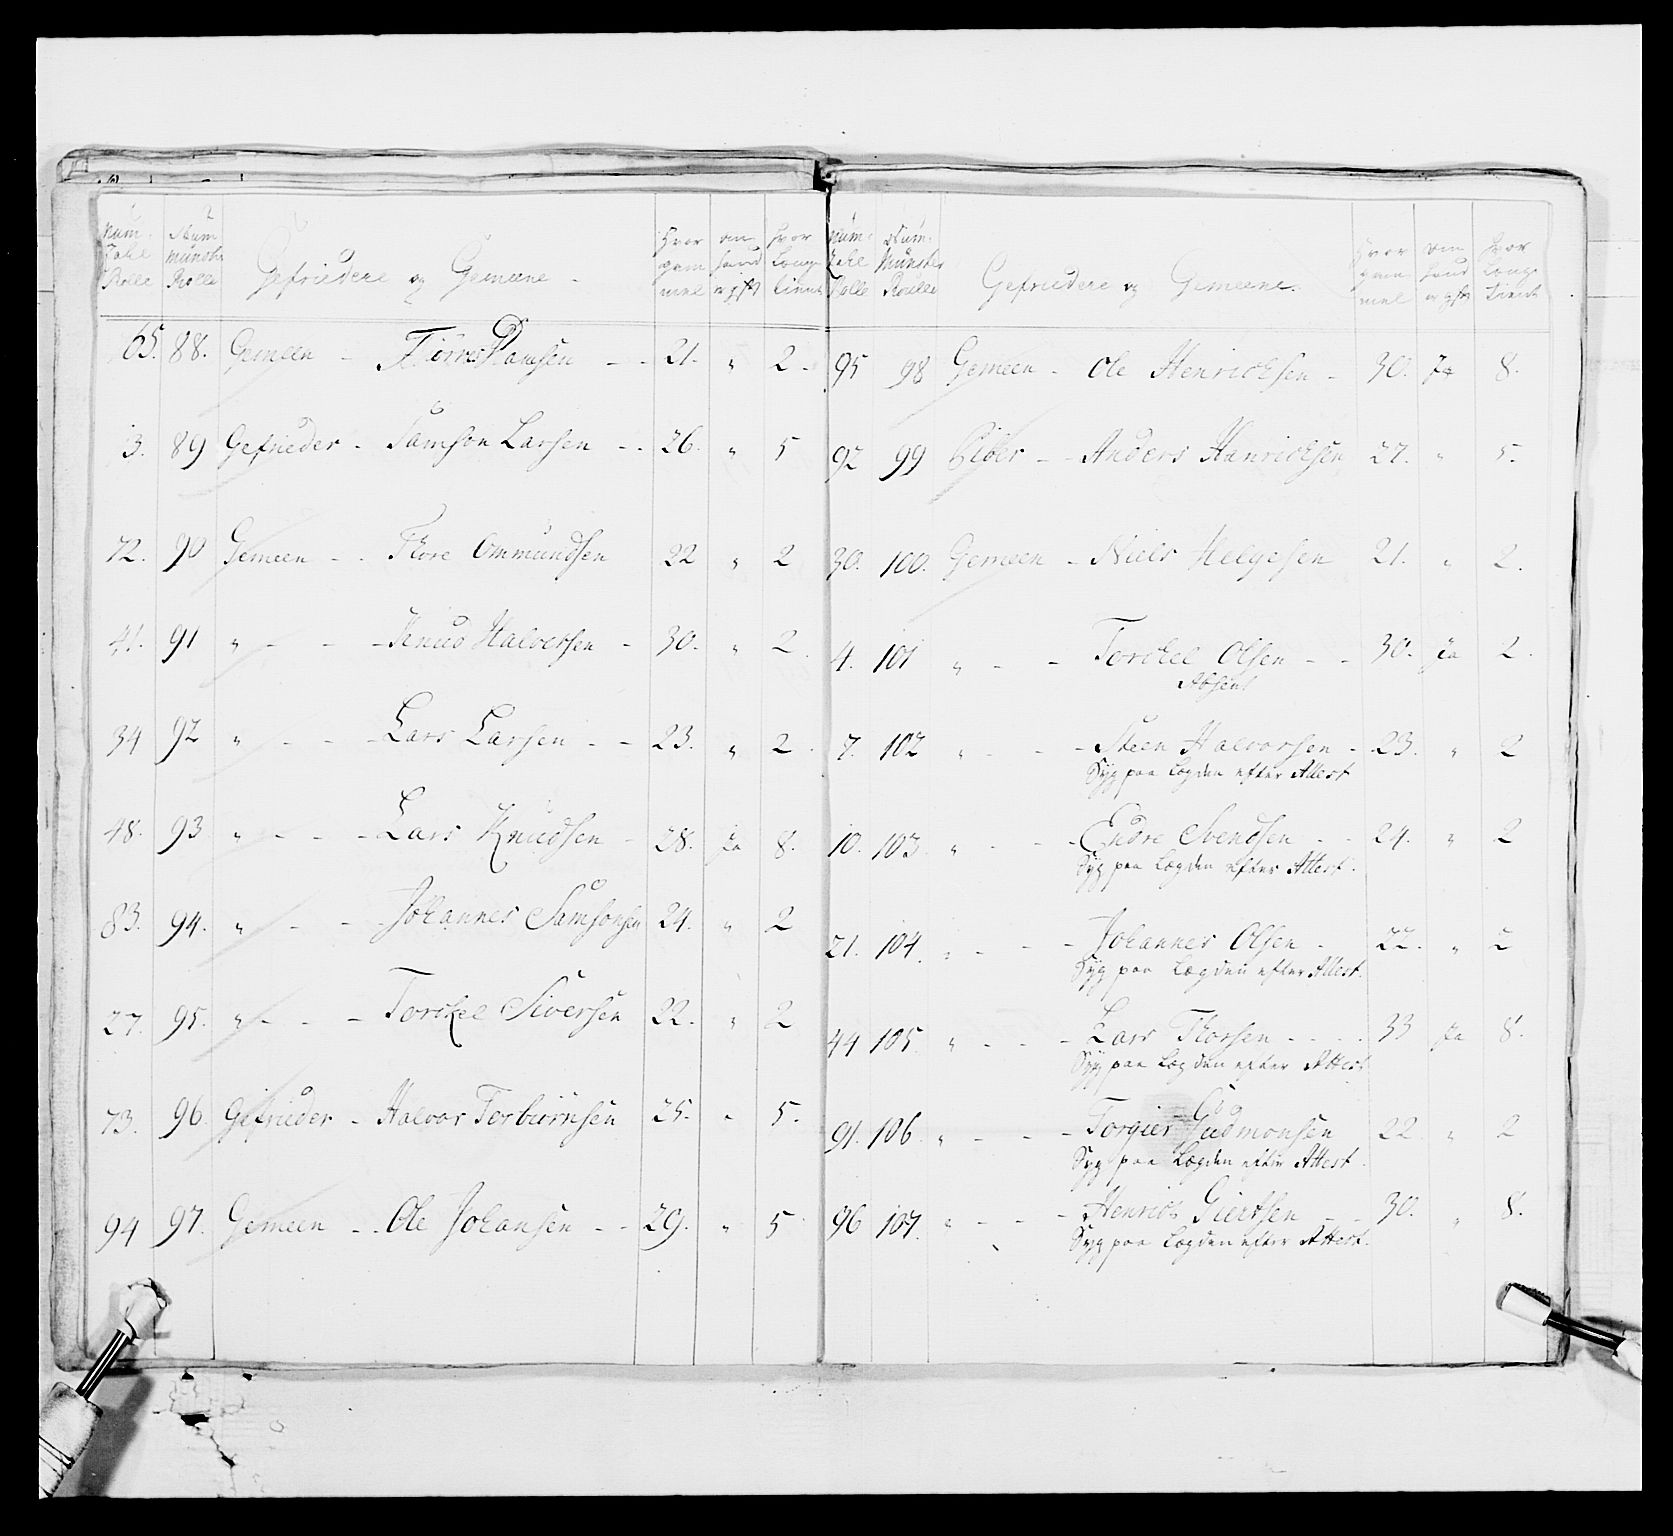 Num. Zahl Rolle | Num Munster Rolle | Gefriedere og Gemeene - | Hvor gam mel | om hand er gift | Hvor Lenge tient
65. 88. Gemeen - Tiørres - - 21. " 2 -
3. 89 Gefrieder - Samson Larsen - - 26. " 5
72. 90 Gemeen - - Thore Ommundsen 22 " 2
41. 91 " - - - Knud Halversen - 30. " 2
34 92 " - - - Lars Larsen - - 23. " 2
48. 93 " - - - Lars Knudsen - 28. Ja 8.
83. 94. " - - Johannes Samsonsen 24. " 2
27. 95. " - - - Torckel Siversen 22. " 2
73. 96. Gefrieder - Halvor Torbiørnsen 25. " 5.
94 97. Gemeen - - Ole Johansen - - 29. " 5
Num. Zahl Rolle | Num. Munster Roulle | Gefriedere og Gemeene. | Hvor gam mel | om hand er gift | Hvor Lenge tient
95 98 Gemeen - Ole Henricksen - 30. Ja 8.
92 99 Piber - - Anders Hanricksen 27. " 5.
30. 100. Gemeen - Niels Helgesen 21. " 2.
4. 101 " - - Torckel Olsen - - 30. Ja 2.
Absent
7. 102 " - - - Steen Halvorsen - 23. " 2
Syg paa Lægden efter Attest
10. 103 " - - - Endre Svendsen - - 24. " 2
Syg paa Lægden efter Attest.
21. 104. " - - - Johannes Olsen - 22. " 2
Syg paa Lægden efter Attest.
44 105. " - - - Lars Thorsen - - - - 33 Ja 8.
Syg paa Lægden efter Attest
91. 106. " - - - Torgier Gudmonsen 22. " 2
Syg paa Lægden efter Attest.
96 107. " - - - Henrick Giertsen - - 30. " 8.
Syg paa Lægden efter Attest.